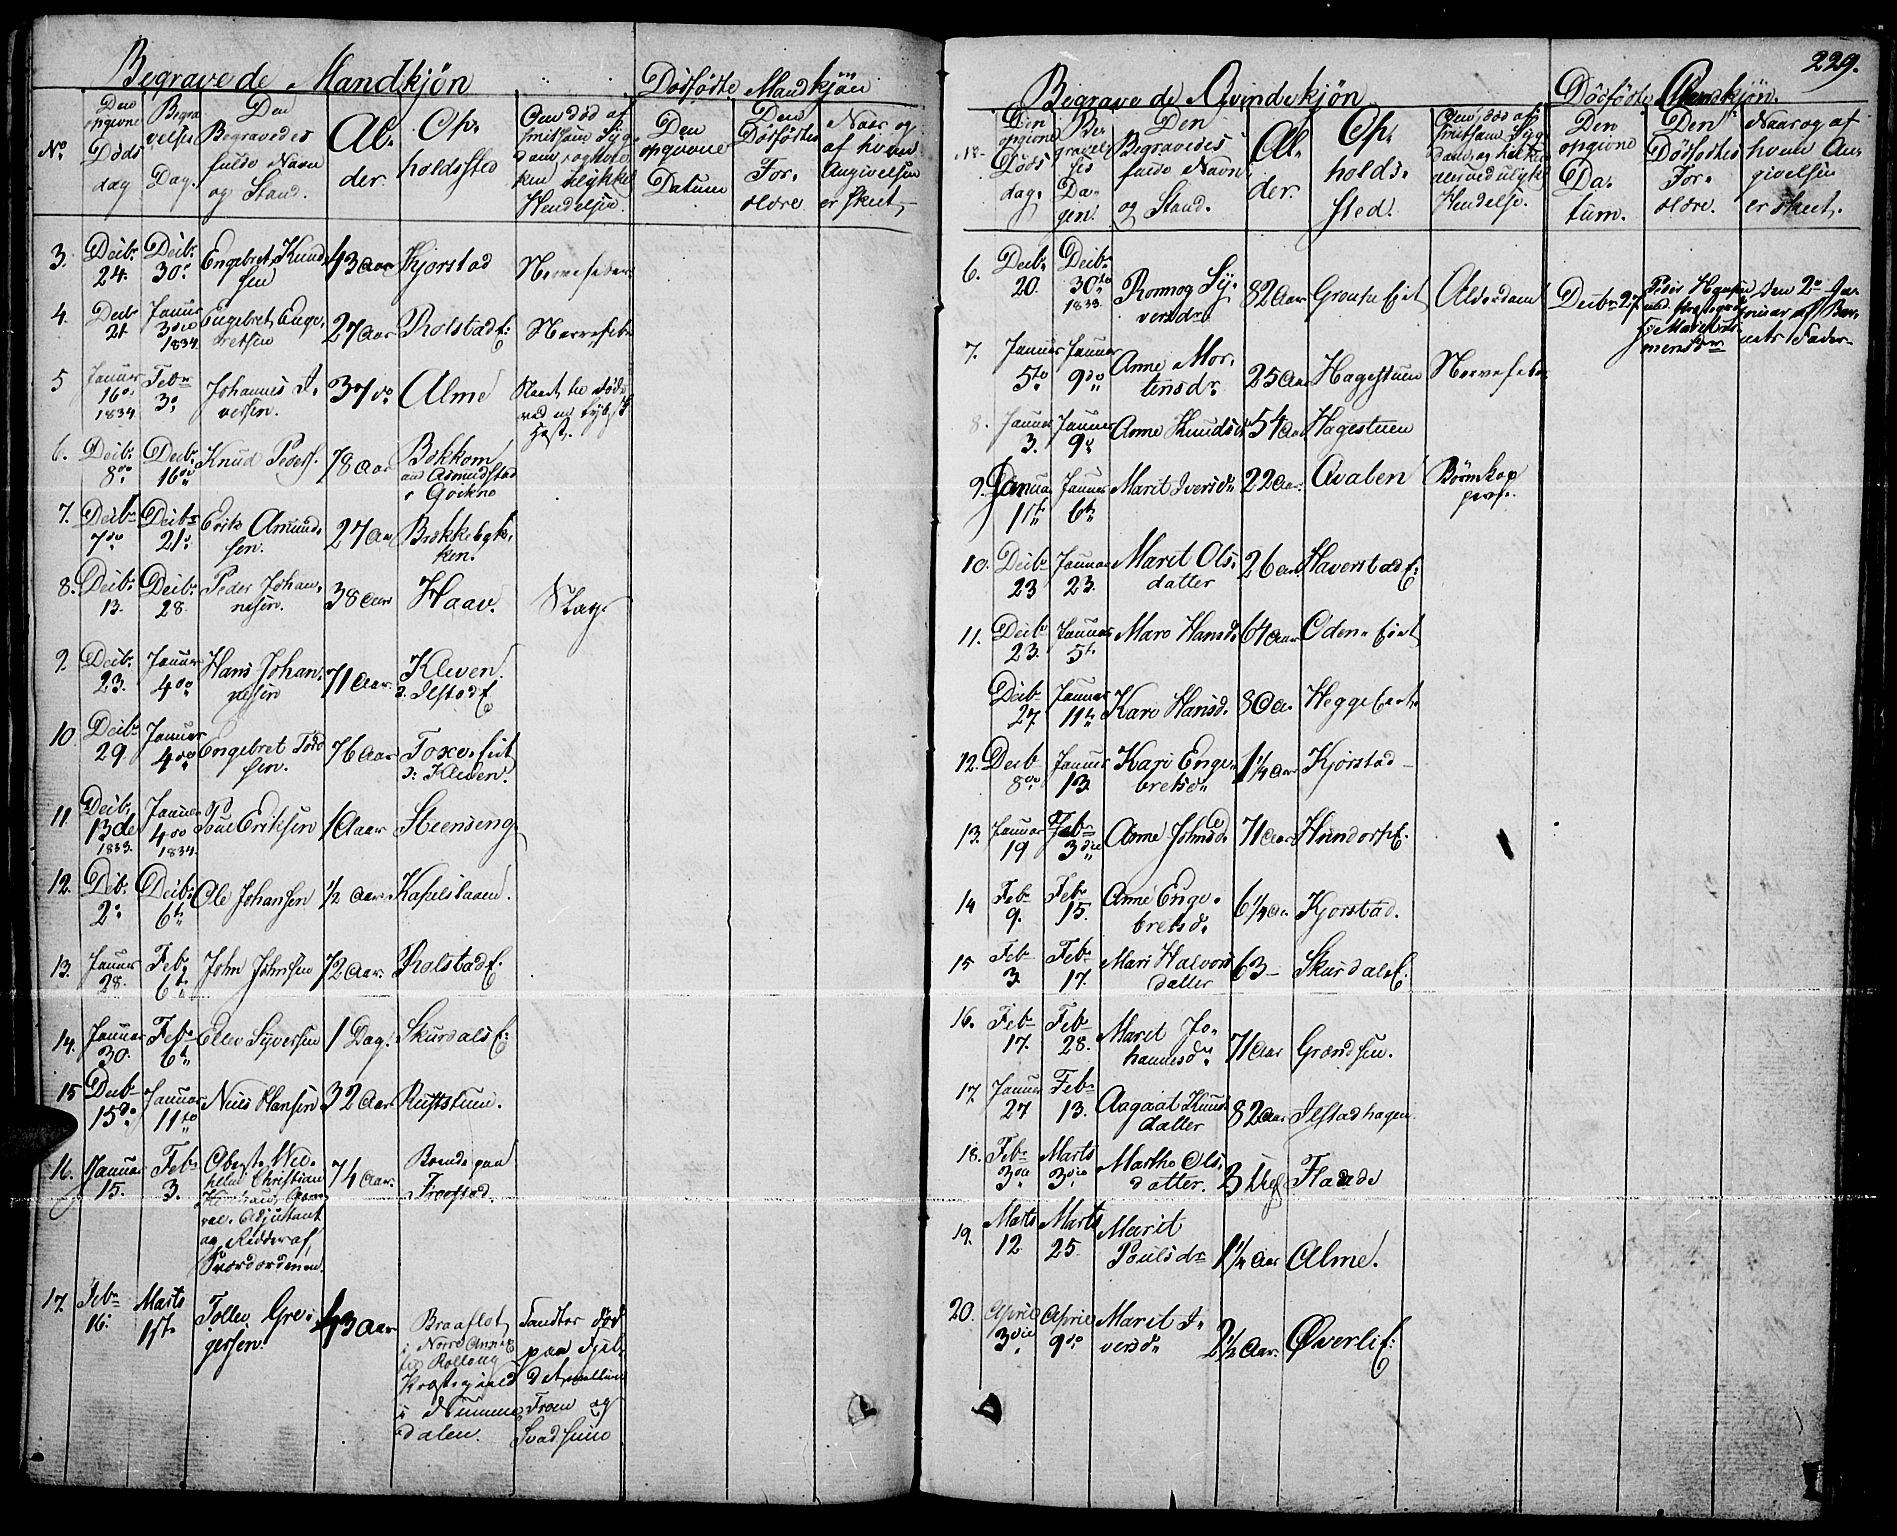 Begravede Mandkjøn
Dödfödte Mandkjön
No
Den opgivne Döds dag
Begravelses Dag.
Den Begravedes fulde Navn og Stand.
Alder.
Opholdssted
Den opgivne Datum
Den Dödfödtes Forældre
Naar og af hvem Angivelsen er skeet
3. Decbr. 24. Decbr. 30. Engebret Knudsen 43 Aar Kjorstad Nervefeber
4. Decbr 21 Januar 3die 1834. Engebret Engebretsen 27 Aar Rolstad E: Nervefeb.
5 Januar 16. 1834. Febr. 3. Johannes Iversen. 37 do Alme
6. Decbr. 8de Decbr. 16de Knud Peders. 78 Aar Bækkom
7. Decbr. 7de Decbr. 21. Erik Amundsen. 27 Aar
8. Decbr. 13. Decbr. 28. Peder Johannesen. 38 Aar Haav. Slag.
9. Decbr. 23. Januar 4de Hans Johannesen 71 Aar. Kleven. Ilstad E
10. Decbr. 29. Januar 4de Engebret 76 Aar
11. Decbr. 13de 1833. Januar 4de 1834. Poul Eriksen 1 Aar Steenseng
12. Decbr. 2. Decbr. 6te Ole Johansen 1/2 Aar
13. Januar 28. Febr. 6te John Johnsen 72 Aar. Rolstad E.
14. Januar 30. Febr. 6te Ellev Syversen 1 Dag. Skurdals E:
15 Decbr 15de Januar 11te Niels Hansen 32 Aar Ruststuen.
16. Januar 15. Febr. 3. Oberst Wilhelm Christian
Adjutant og Ridder af Sværdordenen. 74 Aar. Boende paa Frogstad.
17. Febr. 16. Marts 1ste Tollev Gregersen. 43 Aar Braaflat i Nørre Annex til Rolloug Præstegjæld i Nummedalen. Fandtes död paa Fjeldet mellem Fron og
229.
Begravede Qvindekjön
Dödfödte Qvindkjön.
No.
Den opgivne Döds dag.
Begravelses Dagen.
Den Begravedes fulde Navn og Stand.
Alder.
Opholdssted.
Den opgivne Datum.
Den Dödfödtes Forældre.
Naar og af hvem Angivelsen er skeet.
6. Decbr. 20. Decbr. 30te 1833. Ronnog Syversdr. 82 Aar Alderdom
Decbr 27. Peder Hansen
den 2. Januar af Barnets Fader.
7. Januar 5te Januar 9de Anne Mortensdr. 25 Aar Hagestuen Nervefeber
8. Januar 3. Januar 9de Anne Knudsdr 54 Aar Hagestuen
9. Januar 1ste Januar 6te Marit Iversdr. 22 Aar.
10. Decbr. 23 Januar 23. Marit Olsdatter 26 Aar. Haverstad E:
11. Decbr 23. Januar 5te Mari Hansdr. 64 Aar
Decbr 27. Januar 11te Kari Hansd. 80 Aar
12. Decbr 8de Januar 13 Kari Engebretsdr. 1 1/4 Aar Kjorstad
13. Januar 19 Febr. 3die Anne Johnsd. 71 Aar Hundorp E.
14 Febr. 9. Febr. 15. Anne Engebretsd. 6 1/4 Aar Kjorstad.
15 Febr. 3. Febr. 17. Mari Halvorsdatter 63 Skurdals E.
16. Febr 17. Febr 28. Marit Johannesdr. 71 Aar
17. Januar 27 Febr. 13. Aagaat Knudsdatter 82 Aar Ilstadhagen
18. Febr. 3die Marts 3die Marthe Olsdatter. 3 Ug.
19. Marts 12 Marts 25. Marit Poulsdr 1 1/4 Aar Alme.
20. April 3die April 9de Marit Iversdr. 2 1/2 Aar. Øverli E: